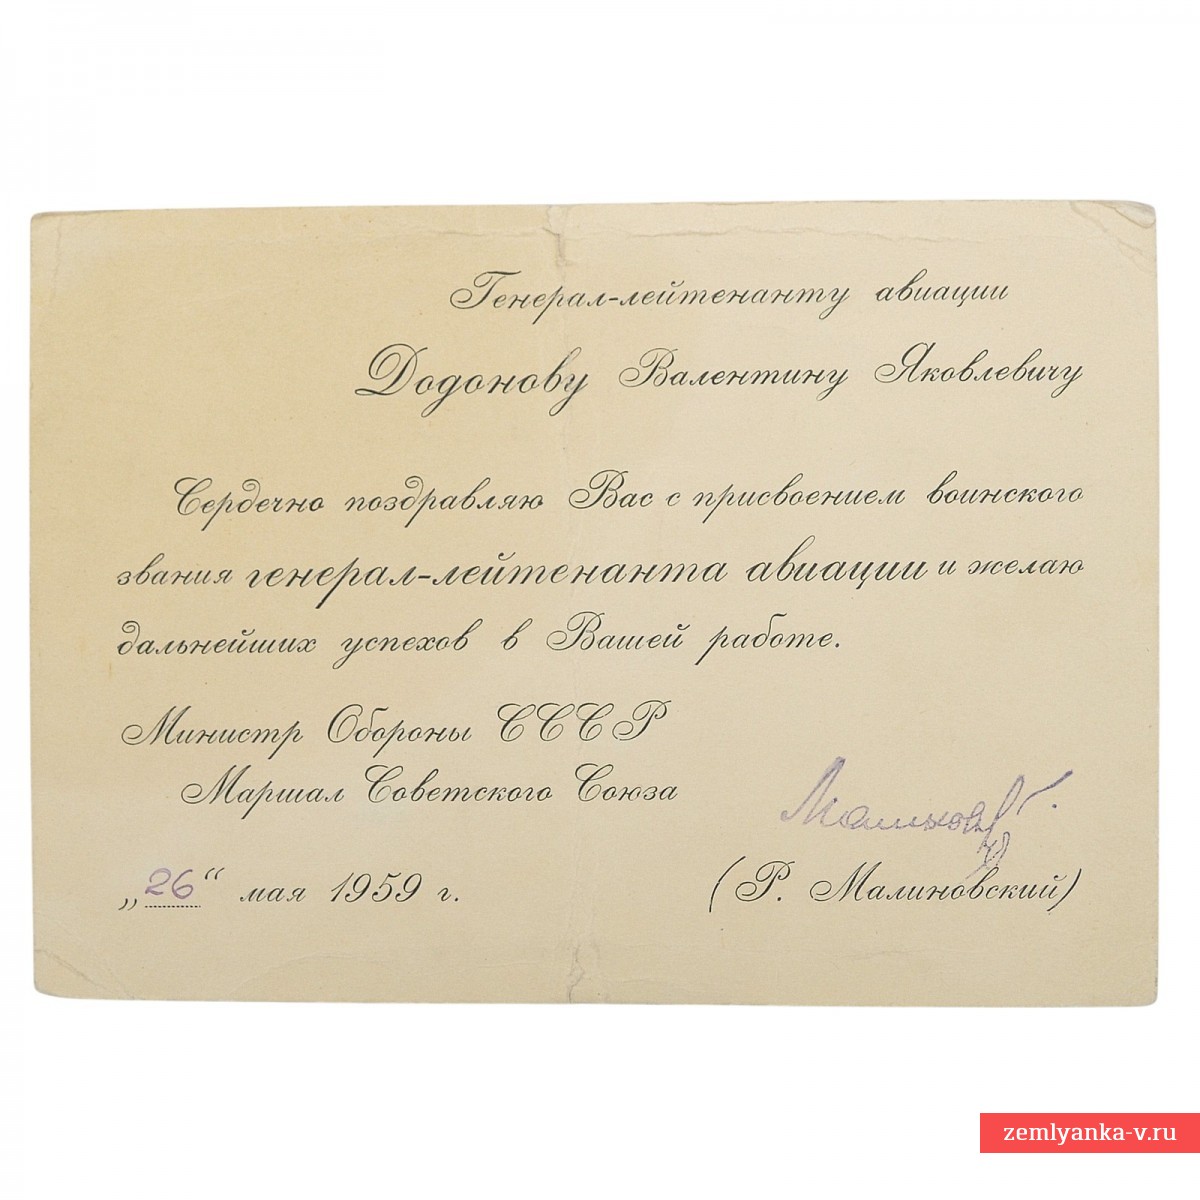 Генерал-лейтенанту авиации
Додонову Валентину Яковлевичу
Сердечно поздравляю Вас с присвоением воинского
звания генерал-лейтенанта авиации и желаю
дальнейших успехов в Вашей работе.
Министр Обороны СССР
Маршал Советского Союза
„26“ мая 1959 г.
(Р. Малиновский)
zemlyanka-v.ru